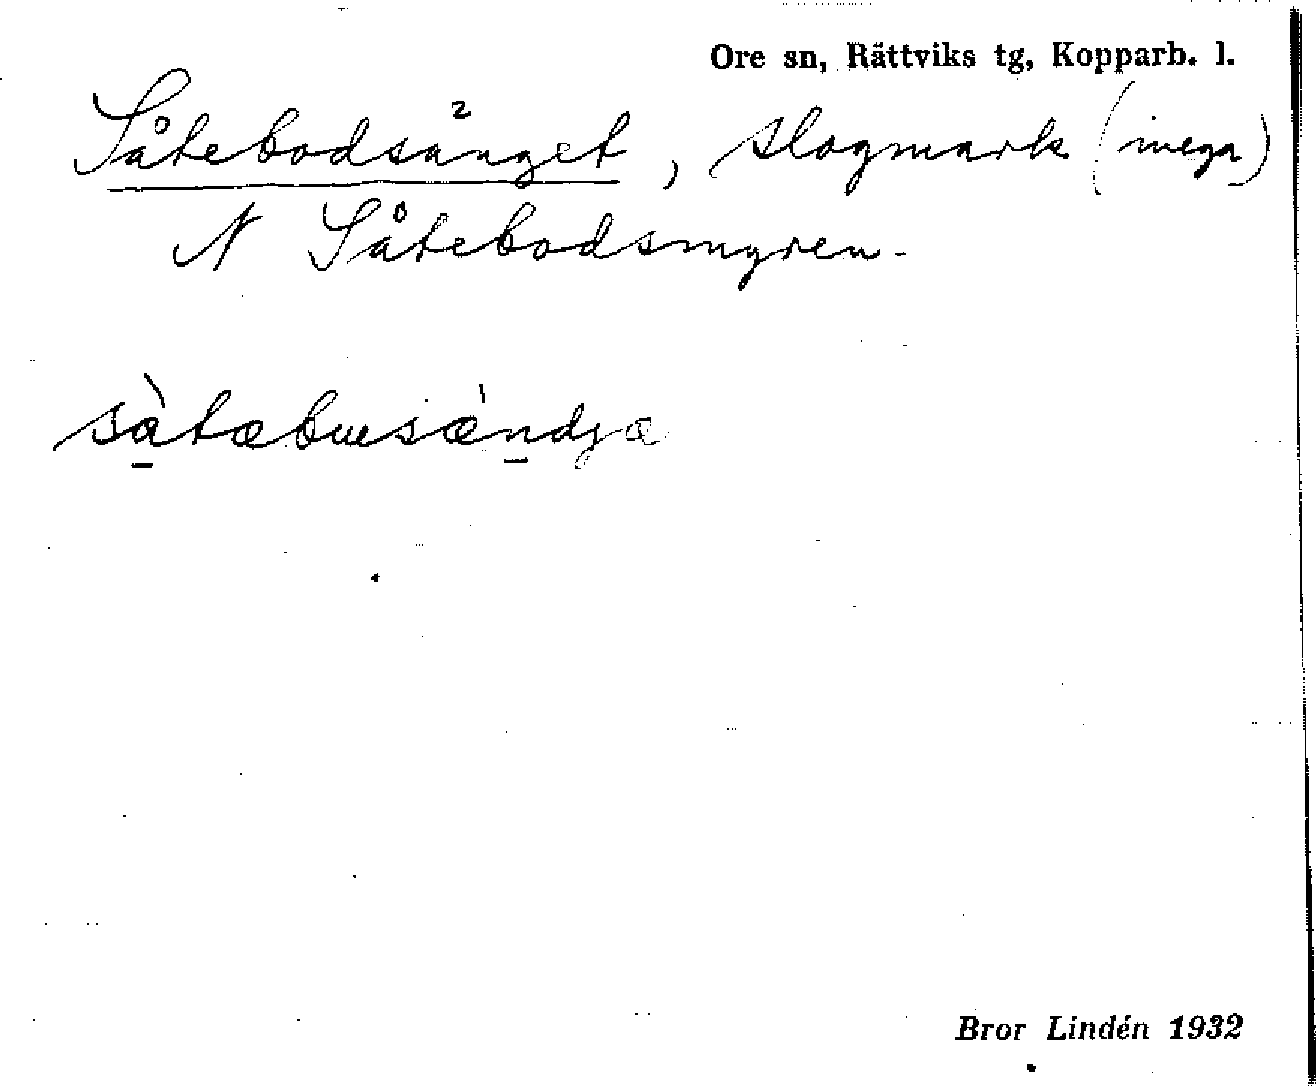 Ore sn, Rättviks tg, Kopparb. l.
Såtebodsänget, slogmark (inega)
N Såtebodsmyren.
sàtæbusǽndʒæ
Bror Lindén 1932